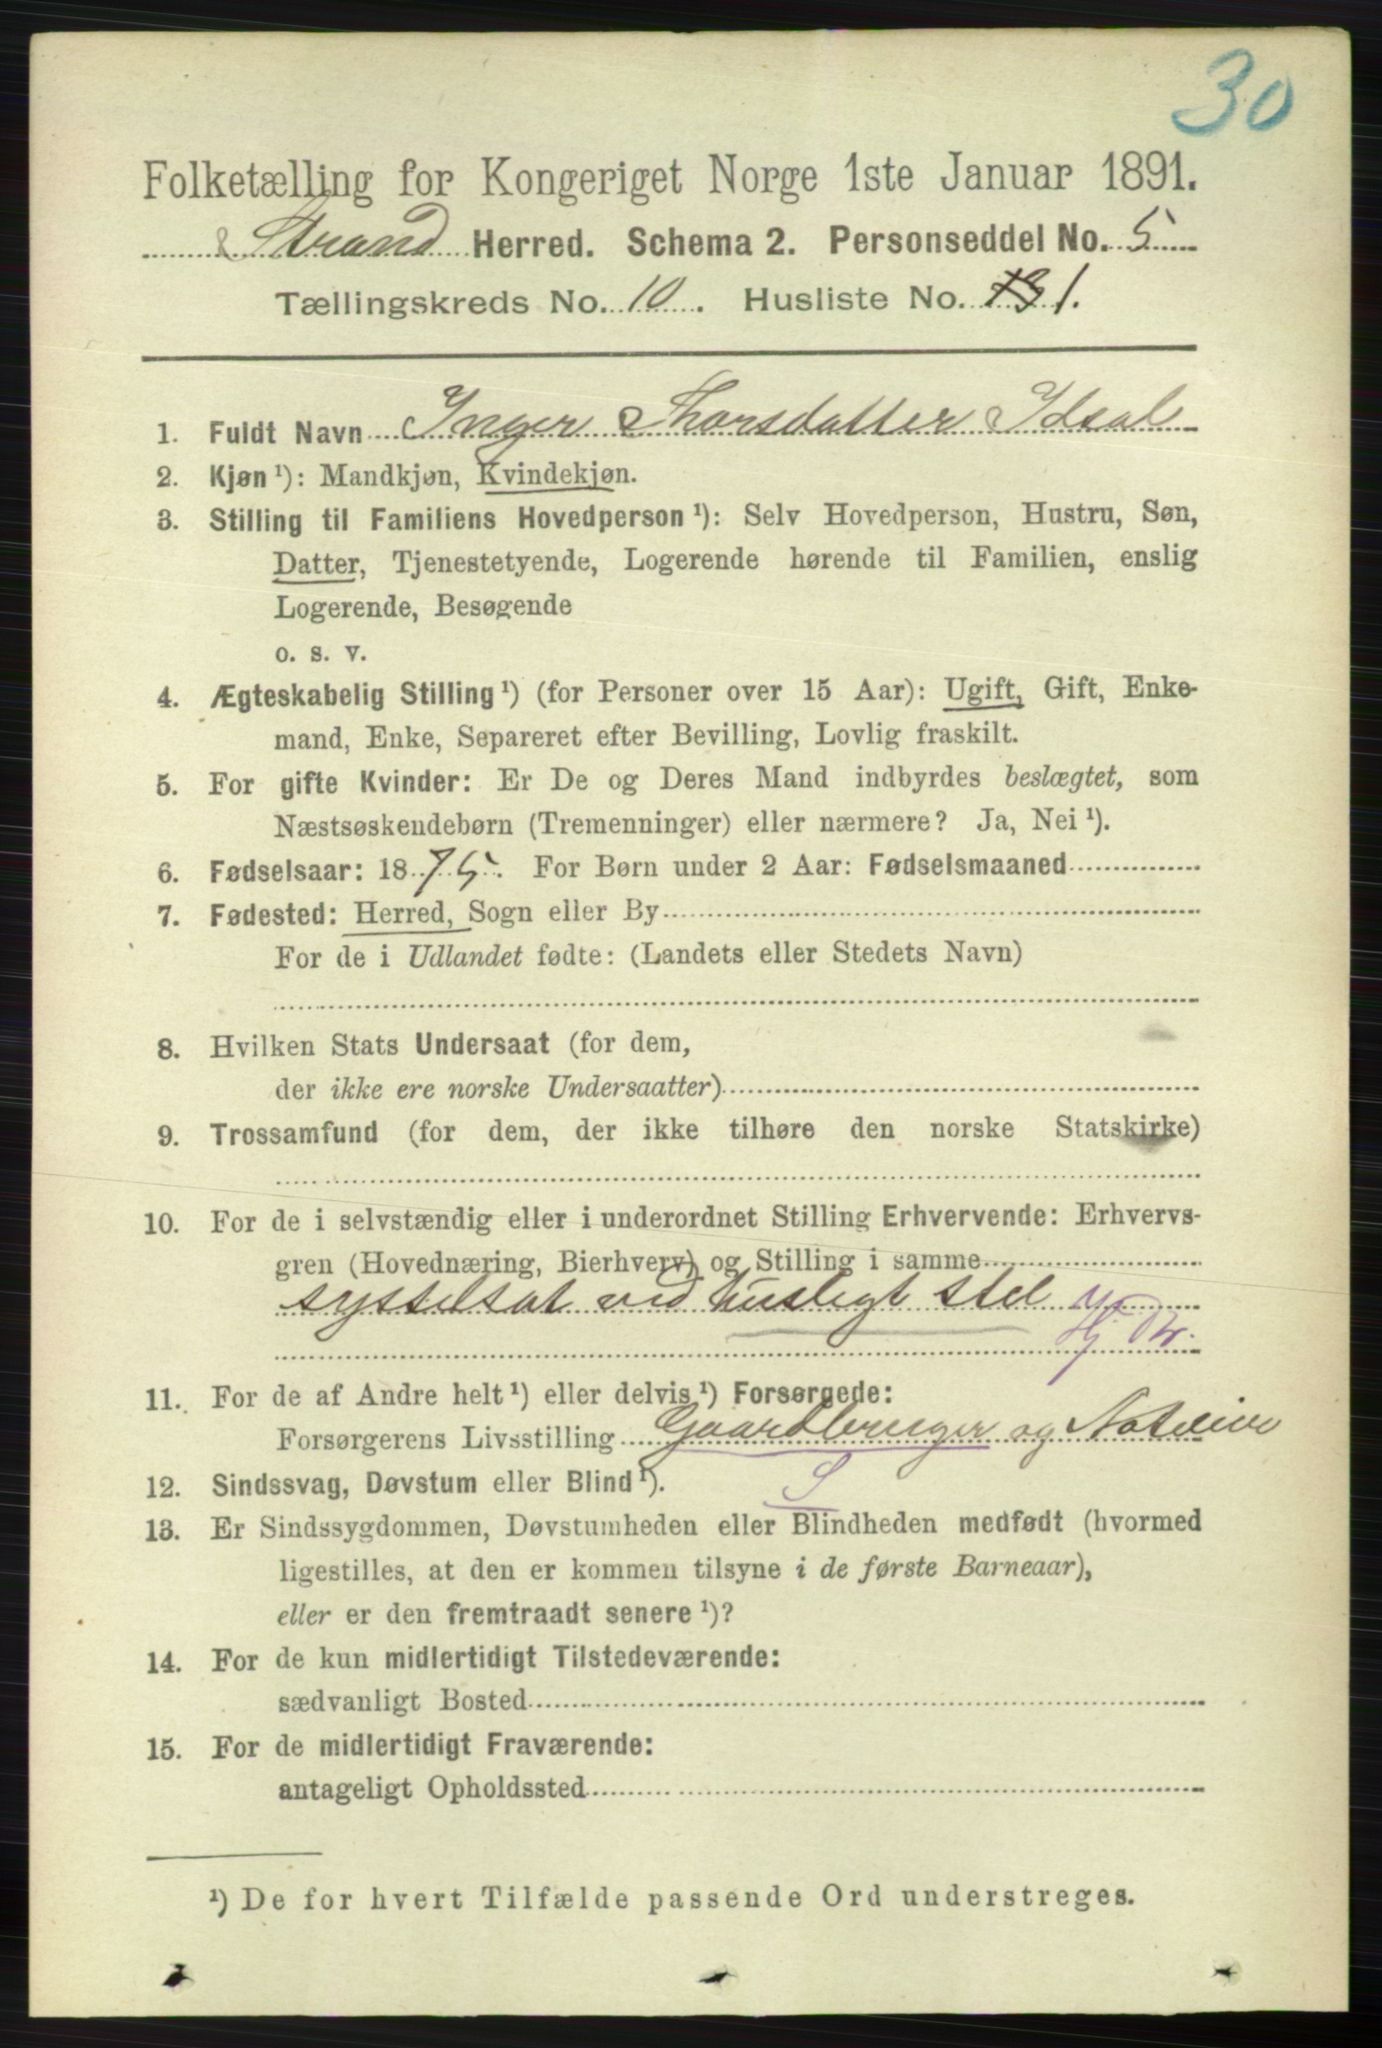 30
Folketælling for Kongeriget Norge 1ste Januar 1891.
Strand Herred. Schema 2. Personseddel No. 5
Tællingskreds No. 10. Husliste No. 1.
1. Fuldt Navn Inger Thorsdatter Idsal
2. Kjøn ¹): Mandkjøn, Kvindekjøn.
3. Stilling til Familiens Hovedperson ¹): Selv Hovedperson, Hustru, Søn,
Datter, Tjenestetyende, Logerende hørende til Familien, enslig
Logerende, Besøgende
o. s. v.
4. Ægteskabelig Stilling ¹) (for Personer over 15 Aar): Ugift, Gift, Enke-
mand, Enke, Separeret efter Bevilling, Lovlig fraskilt.
5. For gifte Kvinder: Er De og Deres Mand indbyrdes beslægtet, som
Næstsøskendebørn (Tremenninger) eller nærmere? Ja, Nei ¹).
6. Fødselsaar: 1875. For Børn under 2 Aar: Fødselsmaaned
7. Fødested: Herred, Sogn eller By
For de i Udlandet fødte: (Landets eller Stedets Navn)
8. Hvilken Stats Undersaat (for dem,
der ikke ere norske Undersaatter)
9. Trossamfund (for dem, der ikke tilhøre den norske Statskirke)
10. For de i selvstændig eller i underordnet Stilling Erhvervende: Erhvervs-
gren (Hovednæring, Bierhverv) og Stilling i samme
sysselsat ved husligt stel
11. For de af Andre helt ¹) eller delvis ¹) Forsørgede:
Forsørgerens Livsstilling Gaardbruger og Noteier
12. Sindssvag, Døvstum eller Blind ¹). S
13. Er Sindssygdommen, Døvstumheden eller Blindheden medfødt (hvormed
ligestilles, at den er kommen tilsyne i de første Barneaar),
eller er den fremtraadt senere ¹)?
14. For de kun midlertidigt Tilstedeværende:
sædvanligt Bosted
15. For de midlertidigt Fraværende:
antageligt Opholdssted
¹) De for hvert Tilfælde passende Ord understreges.